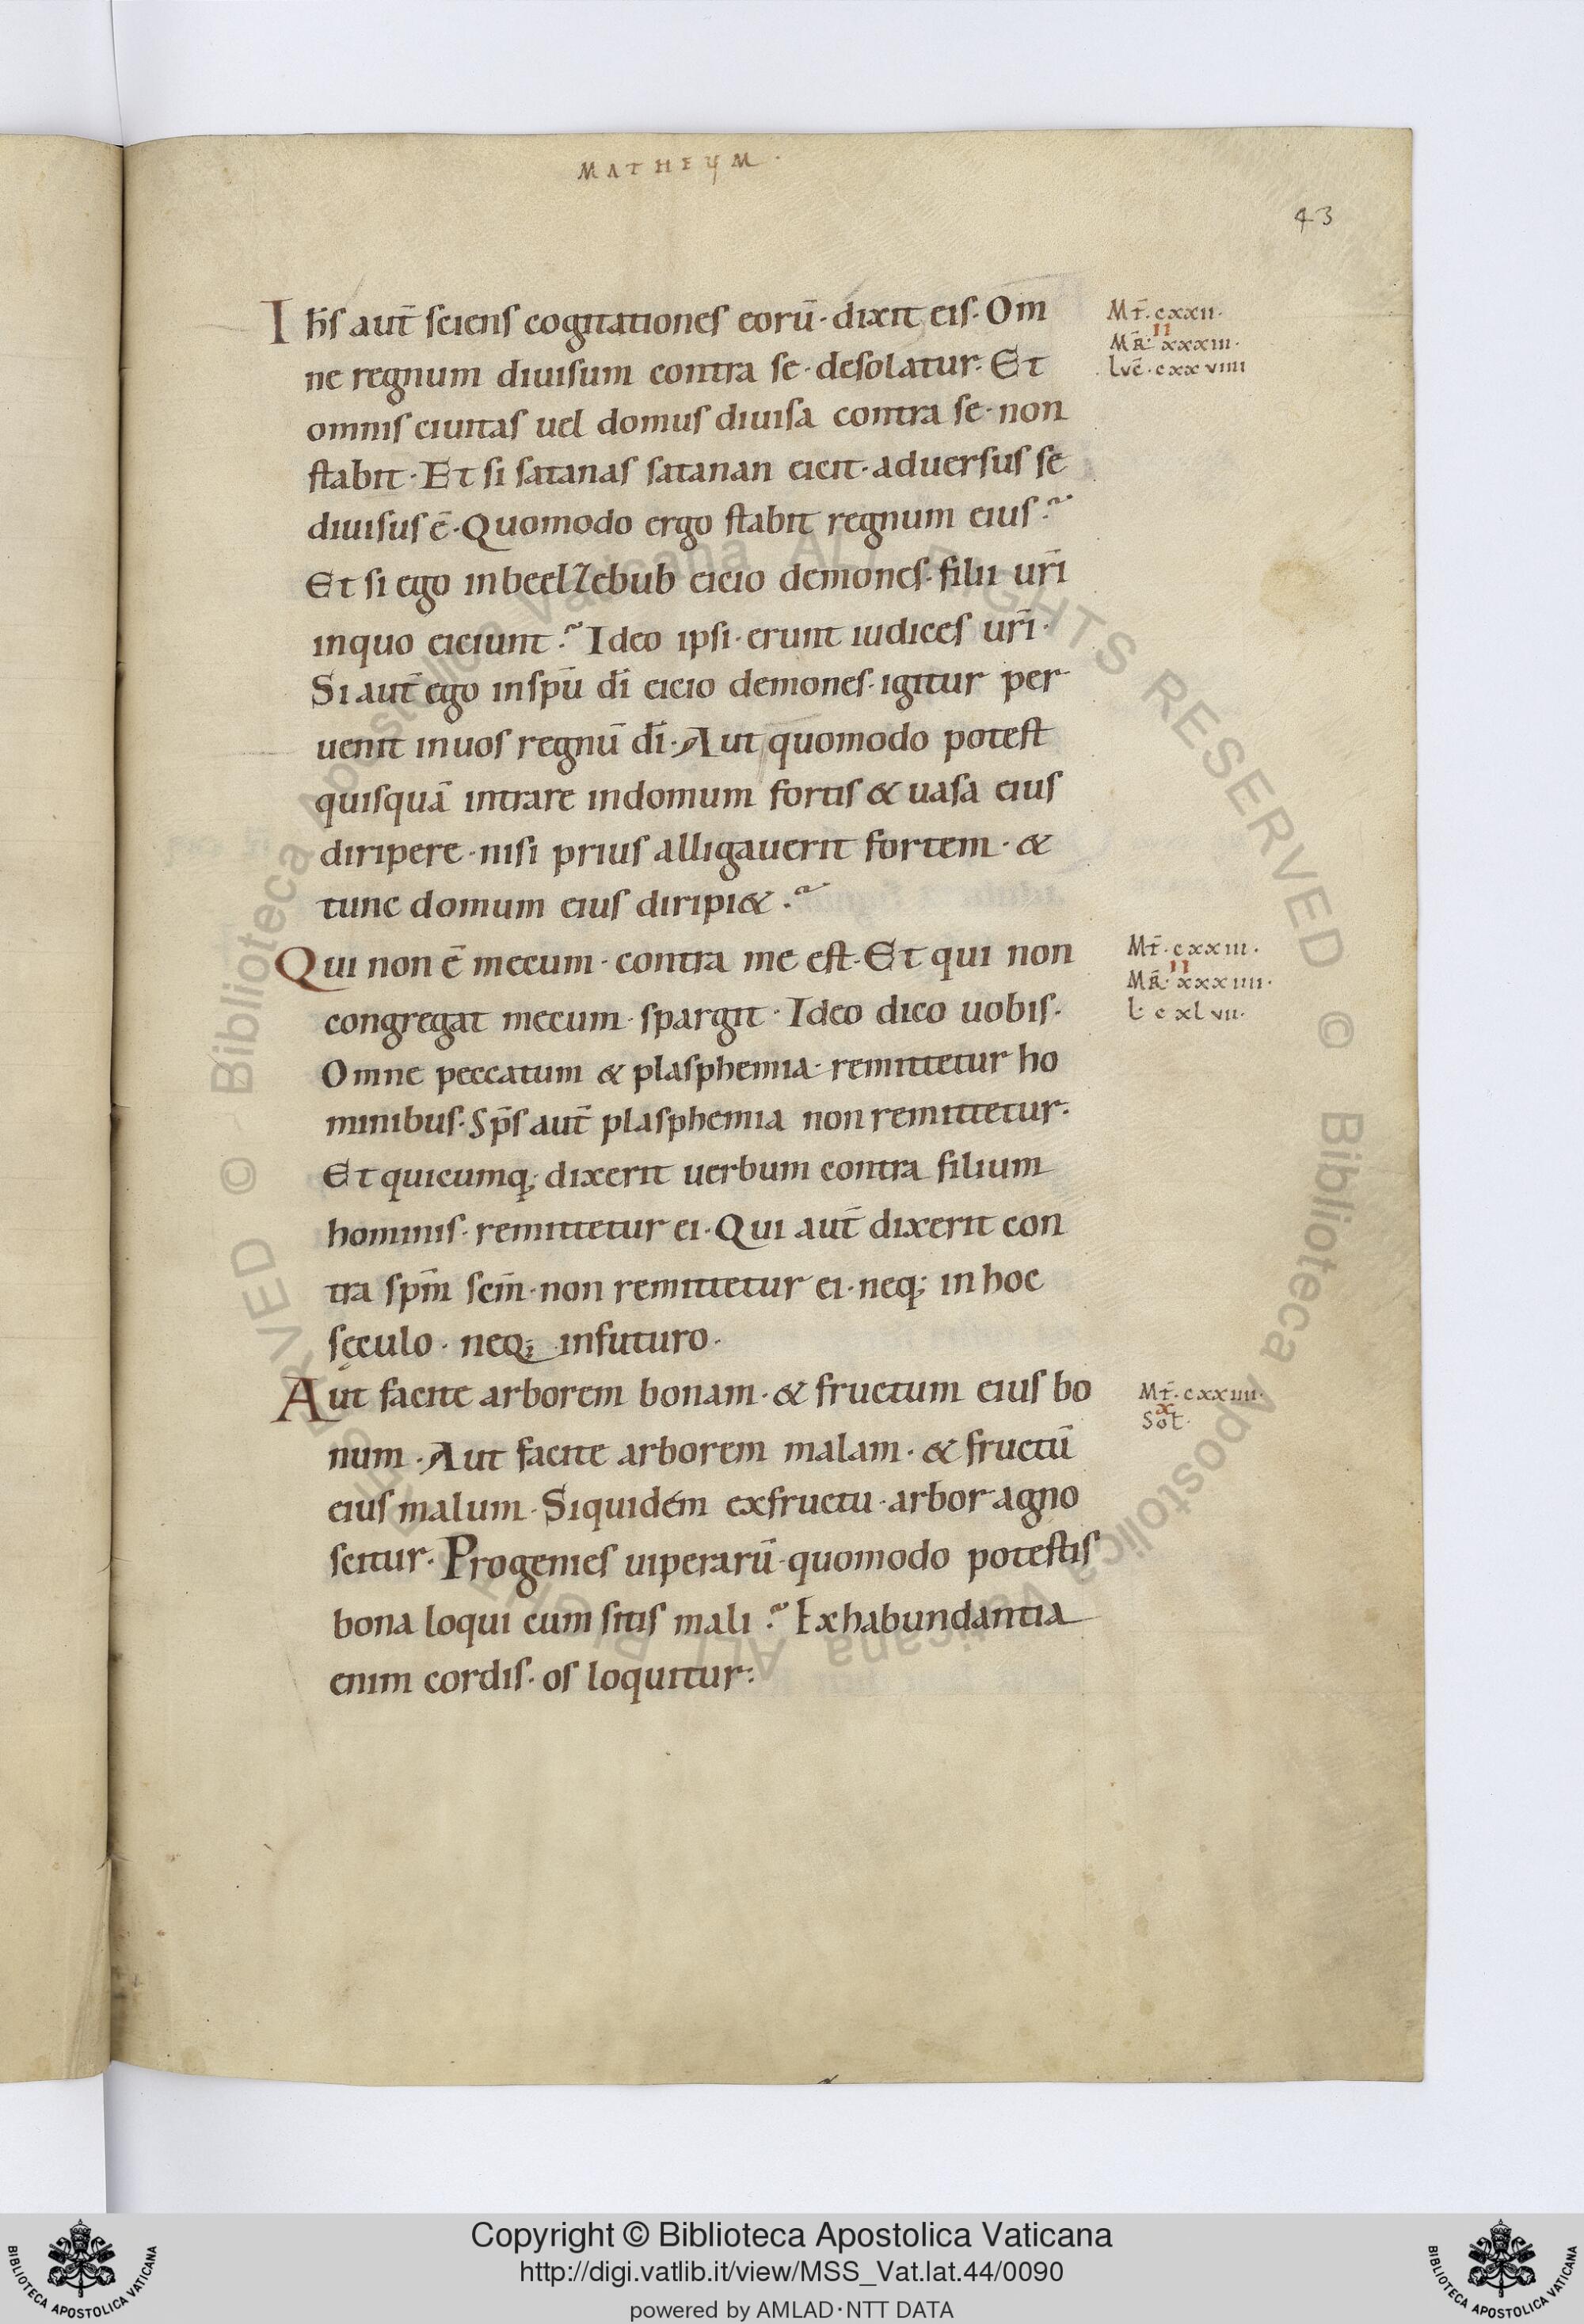 MATHEUM·
43
Ihs̄ aut̄ sciens cogitationes eorū· dixit eis· Om
ne regnum diuisum contra se· desolatur· Et
omnis ciuitas uel domus diuisa contra se· non
stabit· Et si satanas satanan eicit· aduersus se
diuisus ē· Quomodo ergo stabit regnum eius?
Et si ego inbeelzebub eicio demones· filii ur̄i
inquo eiciunt? Ideo ipsi· erunt iudices ur̄i·
Si aut̄ ego inspū dī eicio demones· igitur per
uenit inuos regnū dī· Aut quomodo potest
quisquā intrare indomum fortis & uasa eius
diripere· nisi prius alligauerit fortem· &
tunc domum eius diripi&?
Qui non ē mecum· contra me est· Et qui non
congregat mecum· spargit· Ideo dico uobis·
Omne peccatum & plasphemia· remittetur ho
minibus· Sp̄s aut̄ plasphemia non remittetur·
Et quicumq; dixerit uerbum contra filium
hominis· remittetur ei· Qui aut̄ dixerit con
tra sp̄m scm̄· non remittetur ei· neq; in hoc
sęculo· neq; infuturo·
Aut facite arborem bonam· & fructum eius bo
num· Aut facite arborem malam· & fructū
eius malum· Siquidém exfructu· arbor agno
scitur· Progenies uiperarū· quomodo potestis
bona loqui cum sitis mali? Exhabundantia
enim cordis· os loquitur:
Mt̄· cxxii·
II
MR̄· xxxiii·
Luc̄· cxxviiii
Mt̄· cxxiii·
II
MR̄· xxxiiii·
L· cxlvii·
Mt̄· cxxiiii·
x
Sol·
© Biblioteca Apostolica Vaticana ALL RIGHTS RESERVED © Biblioteca Apostolica Vaticana ALL RIGHTS RESERVED
Copyright © Biblioteca Apostolica Vaticana
http://digi.vatlib.it/view/MSS_Vat.lat.44/0090
powered by AMLAD·NTT DATA
BIBLIOTECA APOSTOLICA VATICANA
BIBLIOTECA APOSTOLICA VATICANA